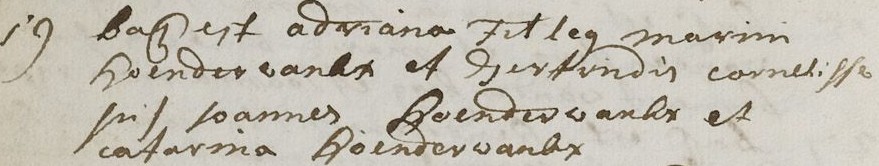 19 bap est adriana fil leg marini
hoendervankx et Gertrudis cornelisse
sus joannes hoendervankx et
catarina hoendervankx